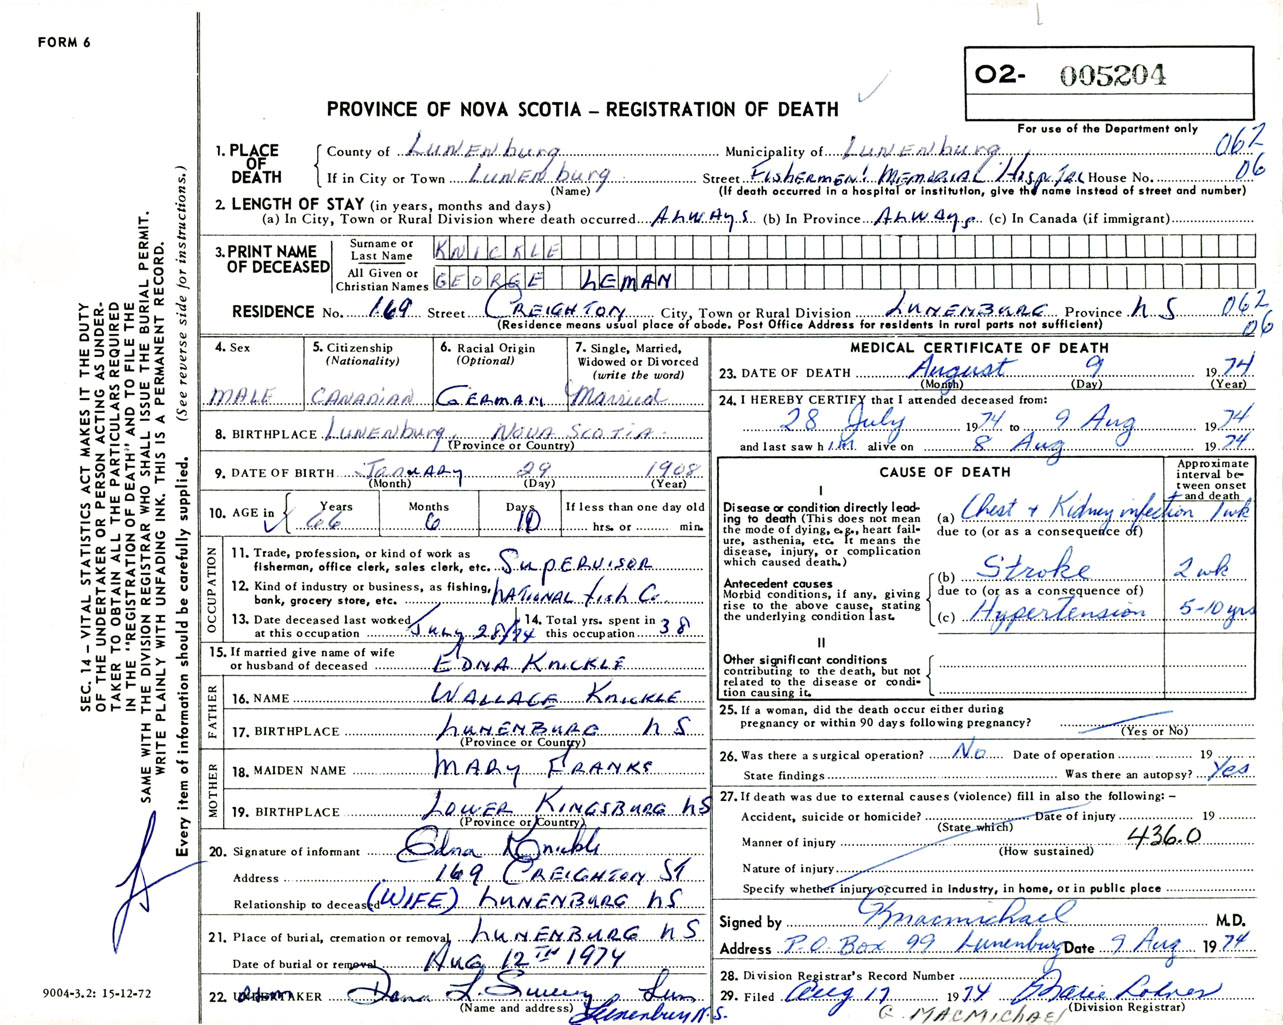 FORM 6
02- 005204
PROVINCE OF NOVA SCOTIA – REGISTRATION OF DEATH
For use of the Department only
1. PLACE OF DEATH
County of LUNENburg Municipality of LUNENburg 062
If in City or Town LUNENburg Street FISHERMEN! MEMORIAL HOSpITAL House No. 06
(Name) (If death occurred in a hospital or institution, give the name instead of street and number)
2. LENGTH OF STAY (in years, months and days)
(a) In City, Town or Rural Division where death occurred ALWAYS (b) In Province ALWAYs (c) In Canada (if immigrant)
3. PRINT NAME OF DECEASED
Surname or Last Name KNICKLE
All Given or Christian Names GEORGE LEMAN
RESIDENCE No. 169 Street CREIGHTON City, Town or Rural Division LUNENBURG Province NS 062
(Residence means usual place of abode. Post Office Address for residents in rural parts not sufficient) 06
4. Sex
MALE
5. Citizenship (Nationality)
CANADIAN
6. Racial Origin (Optional)
GERMAN
7. Single, Married, Widowed or Divorced (write the word)
Married
8. BIRTHPLACE LUNENburg, NOVA SCOTIA
(Province or Country)
9. DATE OF BIRTH JANUARY 29 1908
(Month) (Day) (Year)
10. AGE in Years Months Days If less than one day old
66 6 10 hrs. or min.
OCCUPATION
11. Trade, profession, or kind of work as fisherman, office clerk, sales clerk, etc. SUpERVISOR
12. Kind of industry or business, as fishing, bank, grocery store, etc. NATIONAL fish Co.
13. Date deceased last worked at this occupation July 28/74
14. Total yrs. spent in this occupation 38
15. If married give name of wife or husband of deceased EDNA KNICKLE
FATHER
16. NAME WALLACE KNICKLE
17. BIRTHPLACE LUNENBURG NS
(Province or Country)
MOTHER
18. MAIDEN NAME MARY FRANKS
19. BIRTHPLACE LOWER KINGSBURG NS
(Province or Country)
20. Signature of informant Edna Knickle
Address 169 CREIGHTON ST
Relationship to deceased (WIFE) LUNENBURG NS
21. Place of burial, cremation or removal LUNENBURG NS
Date of burial or removal AUG 12TH 1974
22. UNDERTAKER Dana L. Sweeny
(Name and address) Lunenburg N.S.
MEDICAL CERTIFICATE OF DEATH
23. DATE OF DEATH August 9 1974
(Month) (Day) (Year)
24. I HEREBY CERTIFY that I attended deceased from:
28 July 1974 to 9 Aug 1974
and last saw him alive on 8 Aug 1974
CAUSE OF DEATH
Approximate interval between onset and death
I
Disease or condition directly leading to death (This does not mean the mode of dying, e.g., heart failure, asthenia, etc. It means the disease, injury, or complication which caused death.)
(a) Chest + Kidney infection 1 wk
due to (or as a consequence of)
Antecedent causes
Morbid conditions, if any, giving rise to the above cause, stating the underlying condition last.
(b) Stroke 2 wk
due to (or as a consequence of)
(c) Hypertension 5-10 yrs
II
Other significant conditions contributing to the death, but not related to the disease or condition causing it.
25. If a woman, did the death occur either during pregnancy or within 90 days following pregnancy?
(Yes or No)
26. Was there a surgical operation? No Date of operation 19
State findings Was there an autopsy? Yes
27. If death was due to external causes (violence) fill in also the following: –
Accident, suicide or homicide? Date of injury 19
(State which)
Manner of injury 436.0
(How sustained)
Nature of injury
Specify whether injury occurred in industry, in home, or in public place
Signed by Macmichael M.D.
Address P.O. Box 99 Lunenburg Date 9 Aug 1974
28. Division Registrar's Record Number
29. Filed Aug 17 1974
(Division Registrar)
MACMICHAEL
SEC. 14 – VITAL STATISTICS ACT MAKES IT THE DUTY
OF THE UNDERTAKER OR PERSON ACTING AS UNDER-
TAKER TO OBTAIN ALL THE PARTICULARS REQUIRED
IN THE "REGISTRATION OF DEATH" AND TO FILE THE
SAME WITH THE DIVISION REGISTRAR WHO SHALL ISSUE THE BURIAL PERMIT.
WRITE PLAINLY WITH UNFADING INK. THIS IS A PERMANENT RECORD.
Every item of information should be carefully supplied. (See reverse side for instructions.)
9004-3.2: 15-12-72